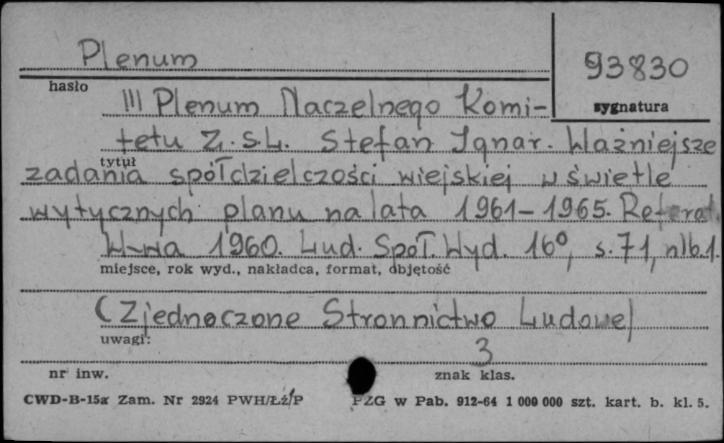 Plenum
93830
hasło
sygnatura
III Plenum Naczelnego Komi-
tetu Z.S.L. Stefan Ignar. Ważniejsze
tytuł
zadania spółdzielczości wiejskiej w świetle
wytycznych planu na lata 1961-1965. Referat
W-wa 1960. Lud. Społ. Wyd. 16°, s. 71, nlb. 1.
miejsce, rok wyd., nakładca, format, objętość
(Zjednoczone Stronnictwo Ludowe)
uwagi:
3
nr inw.
znak klas.
CWD-B-15a Zam. Nr 2924 PWH/Łź/P PZG w Pab. 912-64 1 000 000 szt. kart. b. kl. 5.